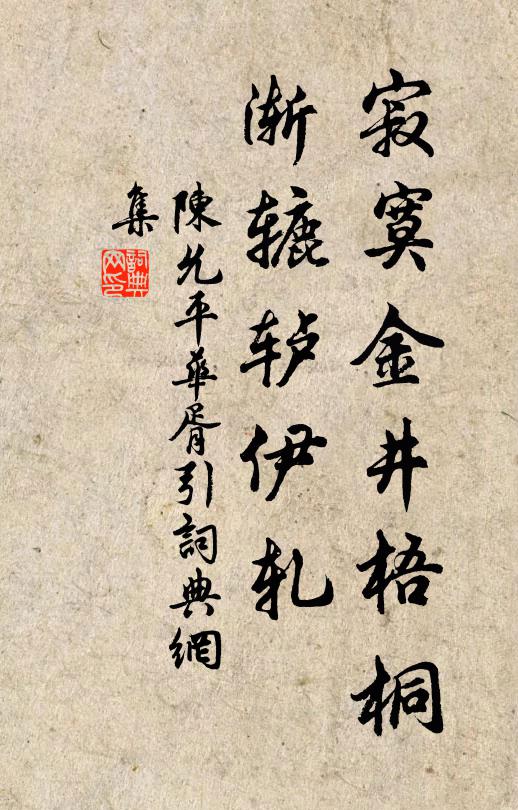 寂寞金井梧桐
渐辘轳伊轧
陳允平華胥引詞典網
集
詞典
网印